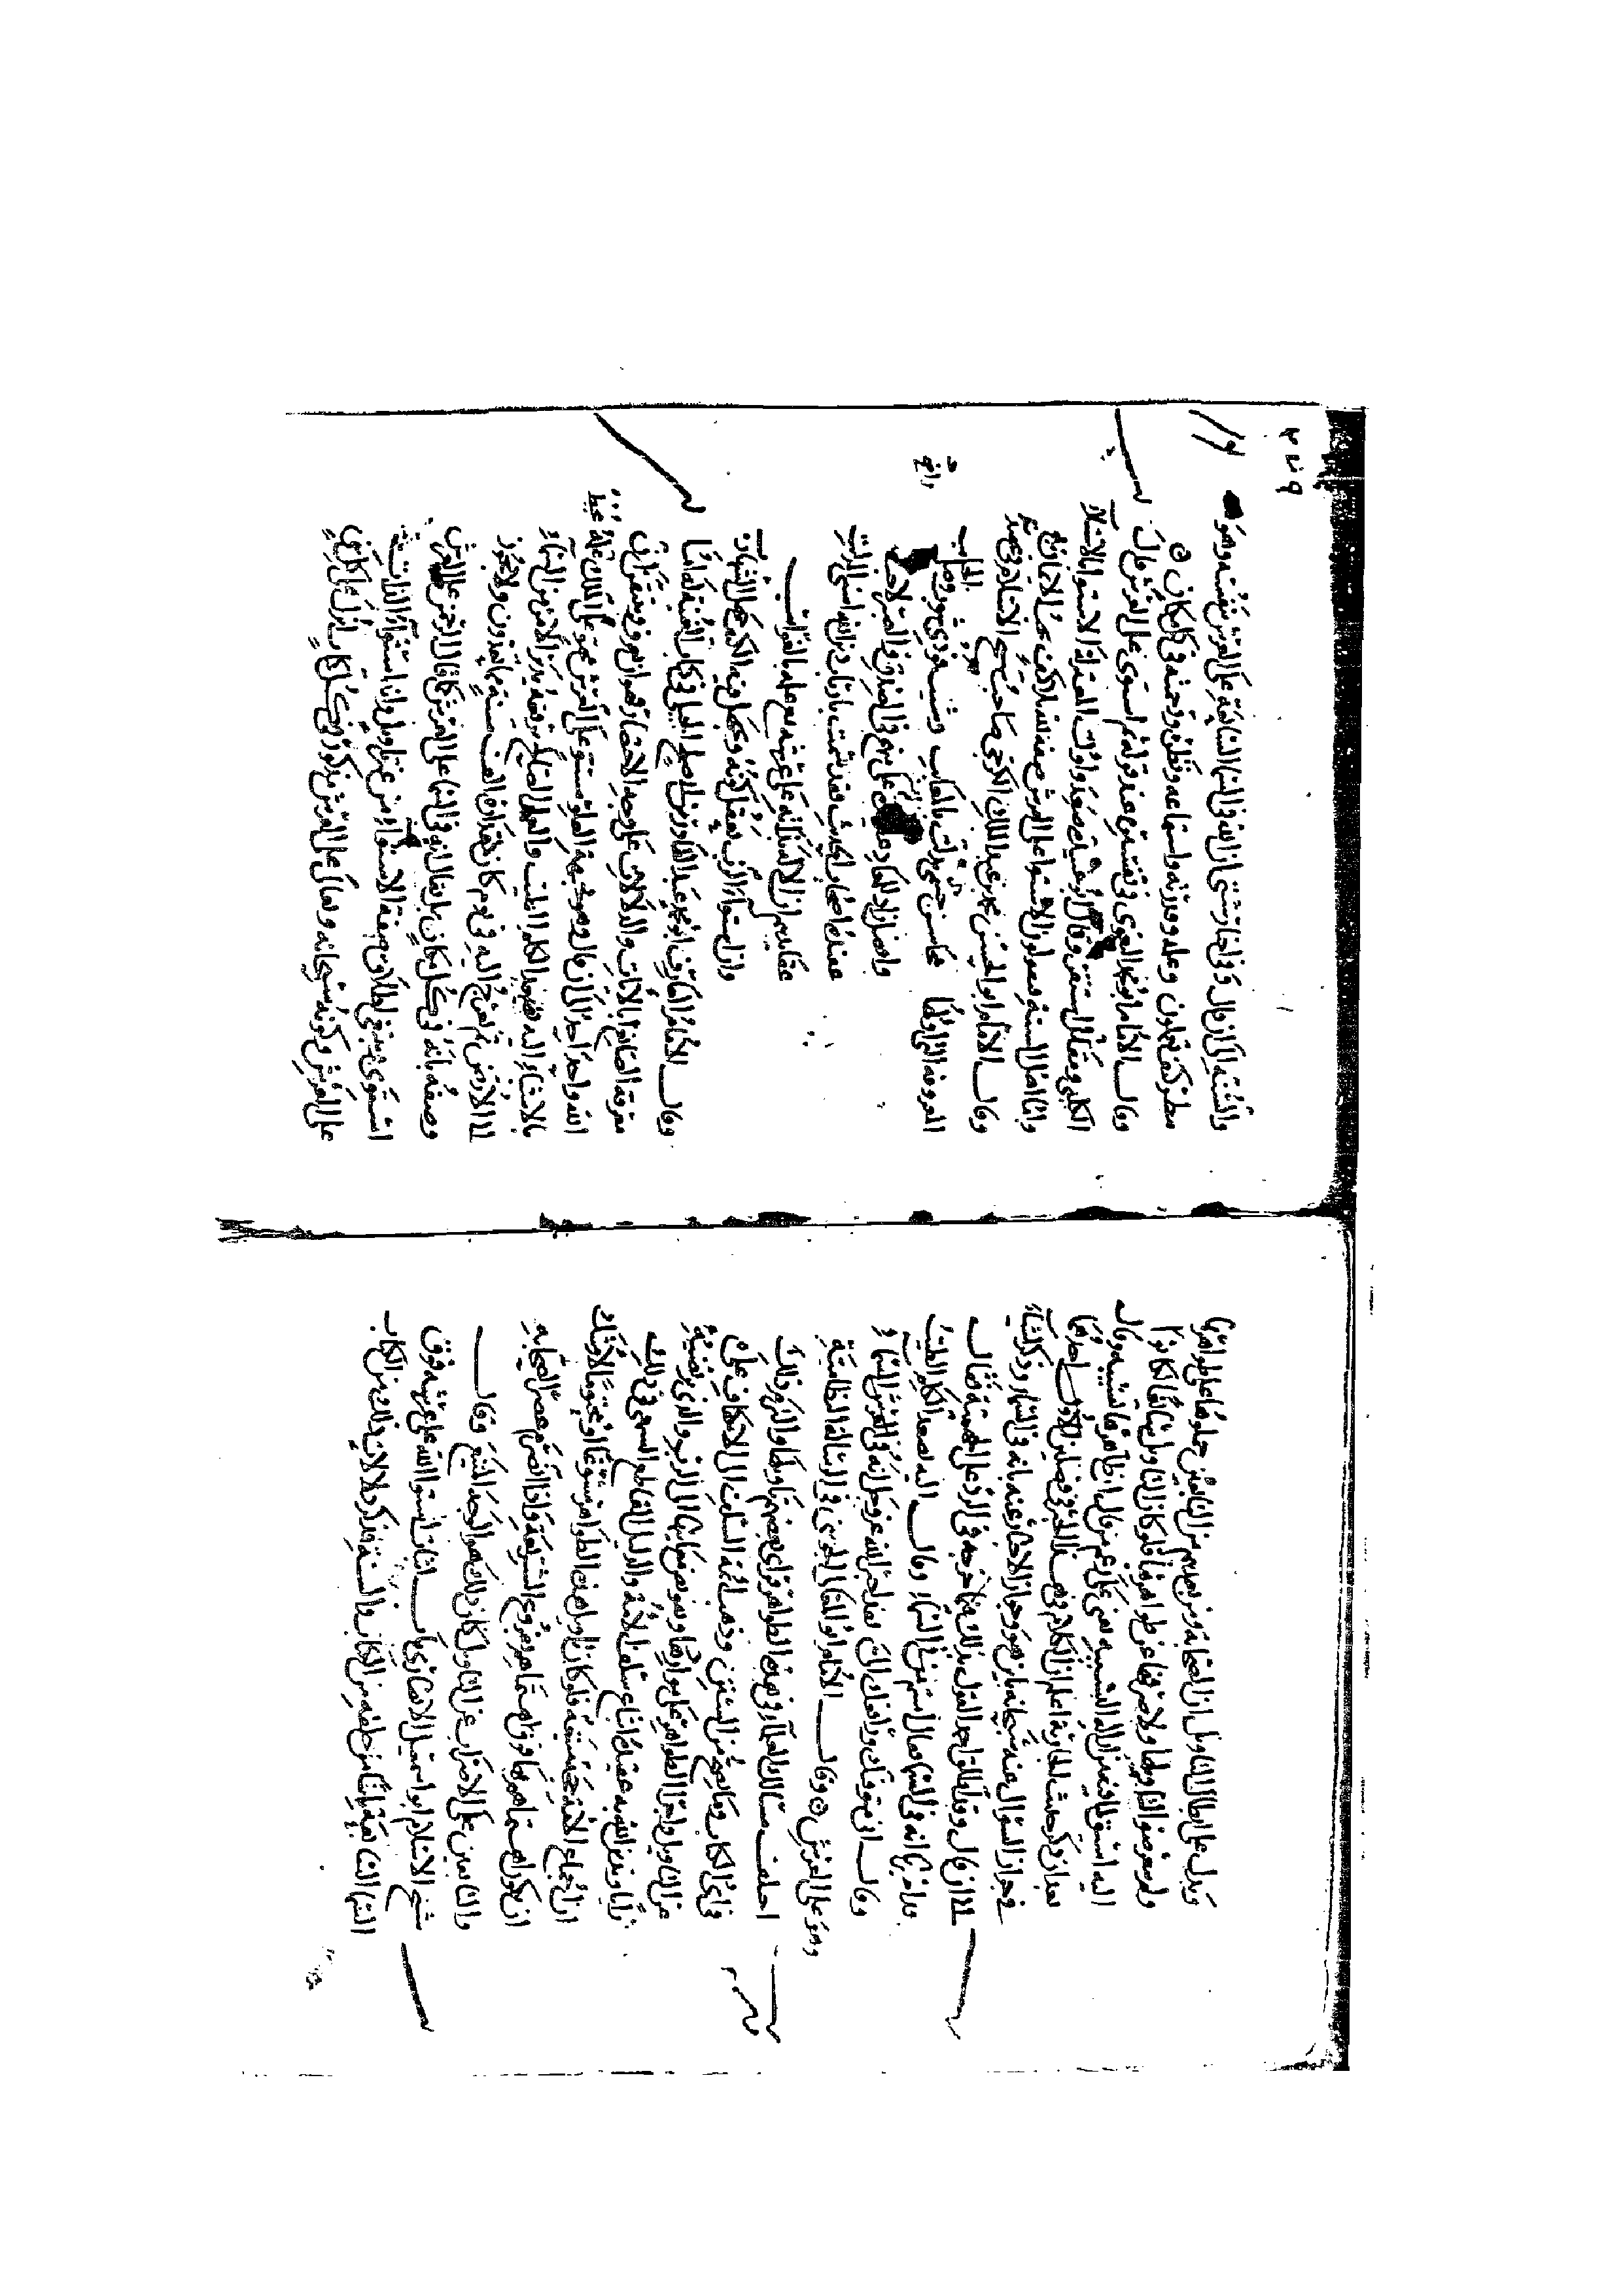 ويدل على ابطال التاويل ان الصحابة ومن بعدهم من التابعين حملوها على ظواهرها
ولم يتعرضوا لتاويلها ولا صرفها عن ظواهرها فلو كان التاويل سائغا لكانوا
اليه اسبق لما فيه من ازالة التشبيه يعني على زعم من قال ان ظاهرها تشبيه وقال
بعد ان ذكر حديث الجارية اعلم ان الكلام في هذا الخبر في فصلين الاول احدهما
في جواز السؤال عنه سبحانه باين هو وجواز الاخبار عنه بانه في السماء وذكر
الى ان قال وقد اطلق احمد القول بذلك فيما خرجه في الرد على الجهمية فقال
قد اخبرنا انه في السماء فقال أأمنتم من في السماء وقال اليه يصعد الكلم الطيب
وقال اني متوفيك ورافعك الي فقد اخبر الله عز وجل انه في السماء
وهو على العرش ⊙ وقال الامام ابو المعالي الجويني في الرسالة النظامية
اختلفت مسالك العلماء في هذه الظواهر فراى بعضهم تاويلها والتزم ذلك
في آي الكتاب وما يصح من السنن وذهب ائمة السلف الى الانكفاف
عن التاويل واجرا الظواهر على مواردها وتفويض معانيها الى الرب والذي نرتضيه
رايا وندين الله به عقيدة اتباع سلف الامة والدليل القاطع السمعي في ذلك
ان اجماع الامة حجة متبعة فلو كان تاويل هذه الظواهر مسوغا او محتوما لاوشك
ان يكون اهتمامهم بها فوق اهتمامهم بفروع الشريعة واذا انصرم عصر الصحابة
والتابعين على الاضراب عن التاويل كان ذلك هو الوجه المتبع وقال
شيخ الاسلام ابو اسمعيل الانصاري باب اثبات استواء الله على عرشه فوق
السماء السابعة بائنا من خلقه من الكتاب والسنة فذكر دلالات ذلك من الكتاب
والسنة الى ان قال وفي اخبار شتى ان الله في السماء السابعة على العرش بنفسه وهو
ينظر كيف تعملون وعلمه وقدرته واستماعه ونظره ورحمته في كل مكان ⊙
وقال الامام ابو محمد البغوي في تفسيره عند قوله ثم استوى على العرش قال
الكلبي ومقاتل استقر وقال ابو عبيدة صعد واولت المعتزلة الاستواء بالاستيلاء
واما اهل السنة فيقولون الاستواء على العرش صفة لله بلا كيف يجب الايمان به
وقال الامام ابو الحسن محمد بن عبد الملك الكرجي صاحب شيخ الاسلام في قصيدته
المعروفة التي اولها محاسن جسمي بدلت بالمعايب وشيب فودي شوب وصل الحبايب
وافضل زاد للمعاد عقيدة على منهج في الصدق والصبر لاحب
عقيدة اصحاب الحديث فقد سمت بارباب دين الله اسنى المراتب
عقايدهم ان الاله بذاته على عرشه مع علمه بالغوايب
وان استواء الرب يعقل كونه ويجهل فيه الكيف جهل الشهارب
وقال الامام العارف ابو محمد عبد القادر بن ابي صالح الجيلي في كتاب الغنية له اما
معرفة الصانع بالايات والدلالات على وجه الاختصار فهو ان يعرف ويتيقن ان
الله واحد احد الى ان قال وهو بجهة العلو مستو على العرش محتو على الملك علمه محيط
بالاشياء اليه يصعد الكلم الطيب والعمل الصالح يرفعه يدبر الامر من السماء
الى الارض ثم يعرج اليه في يوم كان مقداره الف سنة مما تعدون ولا يجوز
وصفه بانه في كل مكان بل يقال انه في السماء على العرش كما قال الرحمن على العرش
استوى وينبغي اطلاق صفة الاستواء من غير تاويل وانه استواء الذات
على العرش وكونه سبحانه وتعالى على العرش مذكور في كل كتاب انزل على كل نبي